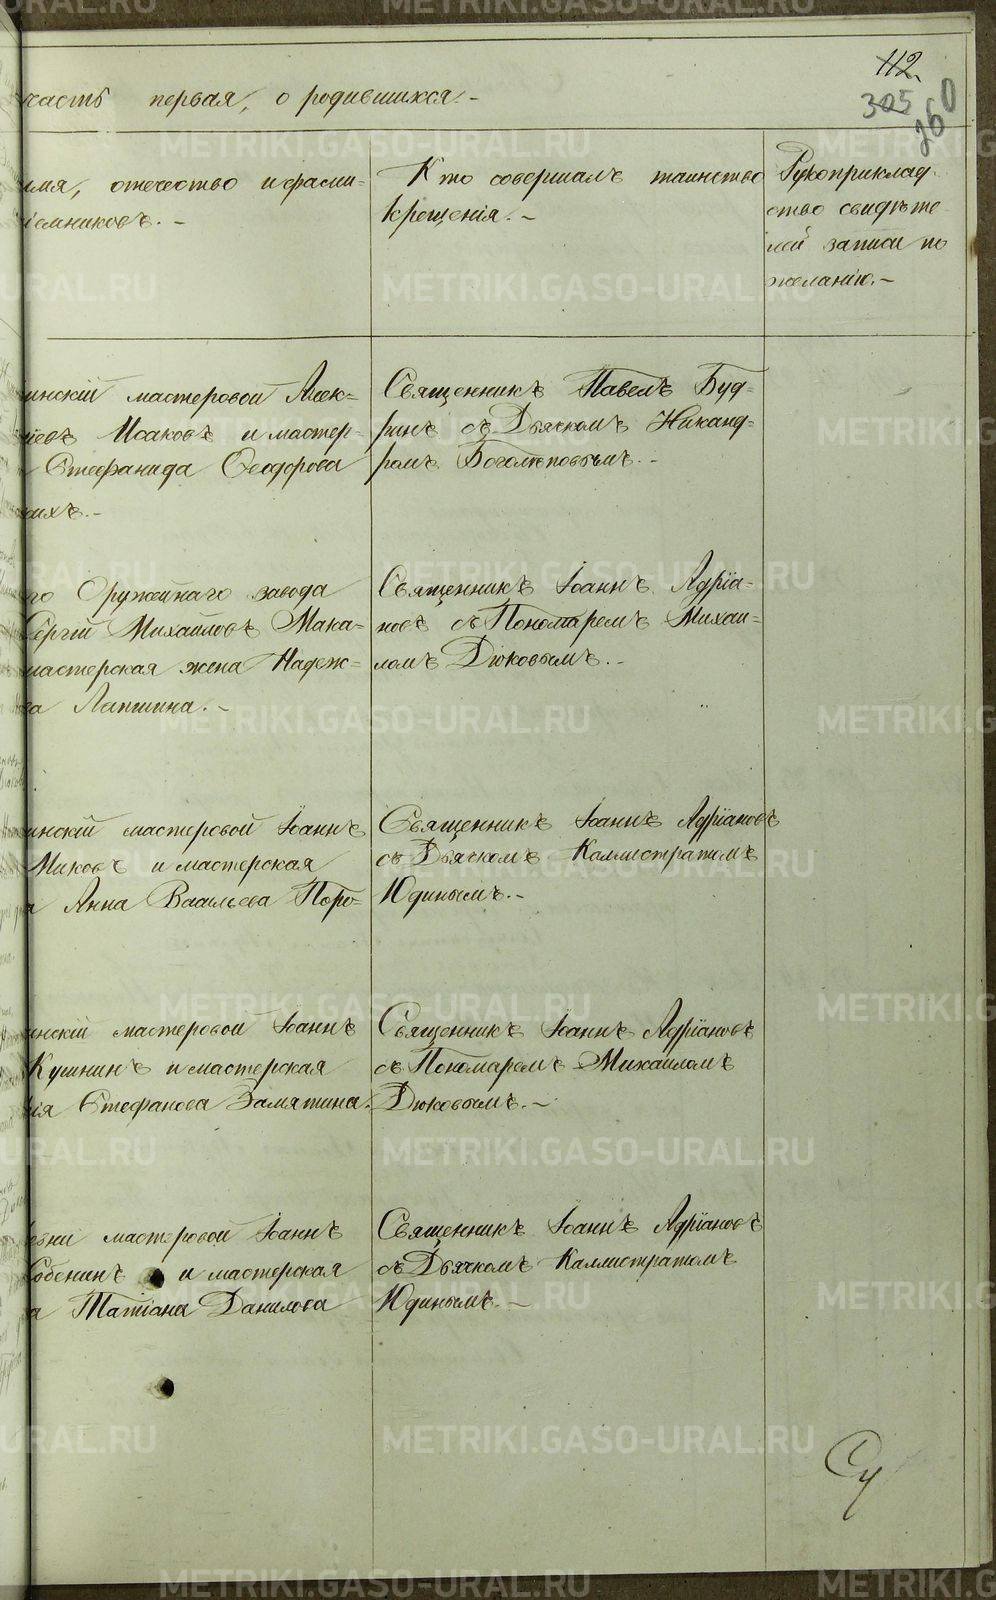 112.
305
260
часть первая, о родившихся.-
имя, отчество и фами-
іемниковъ.-
Кто совершалъ таинство
крещенія.-
Рукоприклад-
ство свидѣте-
лей записи по
желанію.-
инскій мастеровой Алек-
ѣевъ Исаковъ и мастер-
Стефанида Ѳеодорова
ихъ.-
Священникъ Павелъ Буд-
ринъ съ Дьячкомъ Никанд-
ромъ Боголѣповымъ.-
го Оружейнаго завода
Сергій Михайловъ Мака-
мастерская жена Надеж-
ва Лапшина.-
Священникъ Іоаннъ Адріа-
новъ съ Пономаремъ Михаи-
ломъ Дюковымъ.-
инскій мастеровой Іоаннъ
Миковъ и мастерская
а Анна Васильева Поро-
Священникъ Іоаннъ Адріановъ
съ Дьячкомъ Каллистратомъ
Юдинымъ.-
инскій мастеровой Іоаннъ
Кушнинъ и мастерская
ія Стефанова Замятина.
Священникъ Іоаннъ Адріановъ
съ Пономаремъ Михаиломъ
Дюковымъ.-
евни мастеровой Іоаннъ
Собенинъ и мастерская
а Татіана Данилова
Священникъ Іоаннъ Адріановъ
съ Дьячкомъ Каллистратомъ
Юдинымъ.-
METRIKI.GASO-URAL.RU